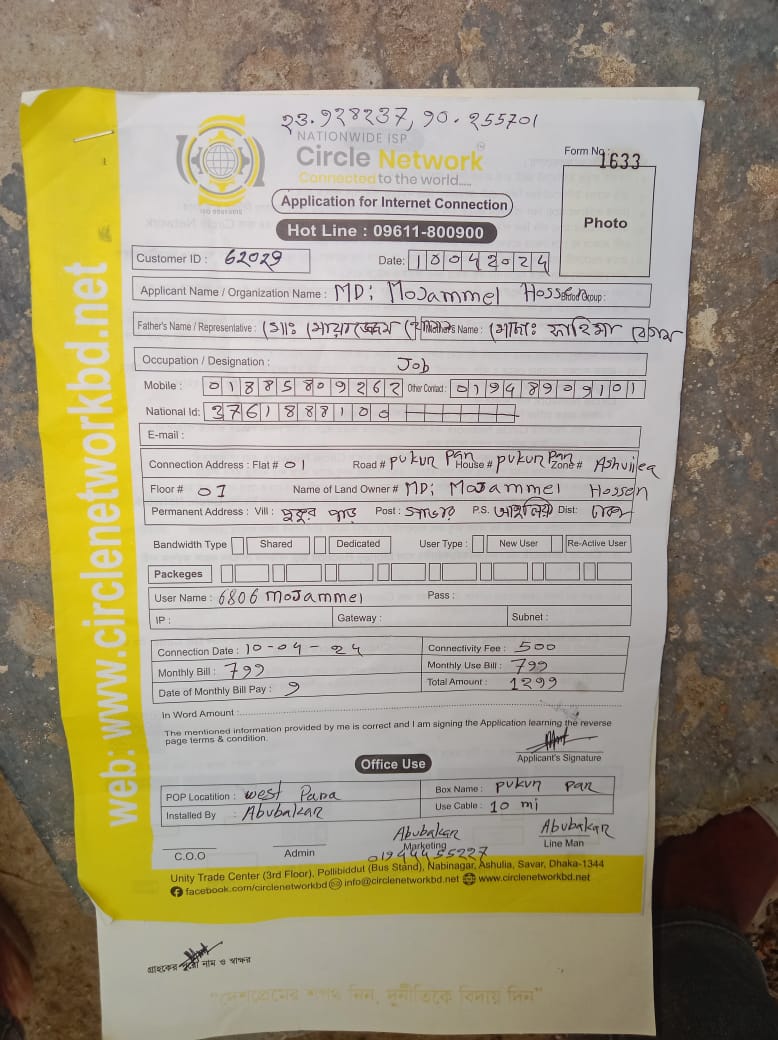 23.928237, 90.255701
NATIONWIDE ISP
Circle Network™
Connected to the world.....
Form No: 1633
Photo
Application for Internet Connection
Hot Line : 09611-800900
Customer ID : 62029
Date: 10042024
Applicant Name / Organization Name : MD: Mojammel Hossen Blood Group :
Father's Name / Representative : Mother's Name : (মোছাঃ বেগম
Occupation / Designation : Job
Mobile : 01885809262 Other Contact : 01948909101
National Id: 3761888100
E-mail :
Connection Address : Flat # 01 Road # pukur Par House # pukur Par Zone # Ashuliea
Floor # 01 Name of Land Owner # MD: Mojammel Hossen
Permanent Address : Vill : পুকুর পাড় Post : সাভার P.S. আশুলিয়া Dist: ঢাকা
Bandwidth Type Shared Dedicated User Type : New User Re-Active User
Packeges
User Name : 6806 Mojammel Pass :
IP : Gateway : Subnet :
Connection Date : 10-04-24 Connectivity Fee : 500
Monthly Bill : 799 Monthly Use Bill : 799
Date of Monthly Bill Pay : 9 Total Amount : 1299
In Word Amount :
The mentioned information provided by me is correct and I am signing the Application learning the reverse
page terms & condition.
Applicant's Signature
Office Use
POP Locatition : West Para Box Name : pukur par
Installed By : Abubakar Use Cable : 10 mi
Abubakar Abubakar
C.O.O Admin Marketing Line Man
01944455227
Unity Trade Center (3rd Floor), Pollibiddut (Bus Stand), Nabinagar, Ashulia, Savar, Dhaka-1344
facebook.com/circlenetworkbd info@circlenetworkbd.net www.circlenetworkbd.net
web: www.circlenetworkbd.net
গ্রাহকের নাম ও স্বাক্ষর
"দেশপ্রেমের শপথ নিন, দুর্নীতিকে বিদায় দিন"